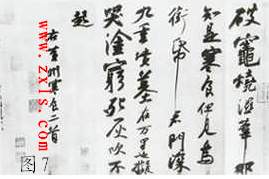 破竈燒濕葦那
知是寒食但見烏
銜帋 君門深
九重墳墓在万里也擬
哭塗窮死灰吹不
起
右黃州寒食二首
www.zxls.com
图7